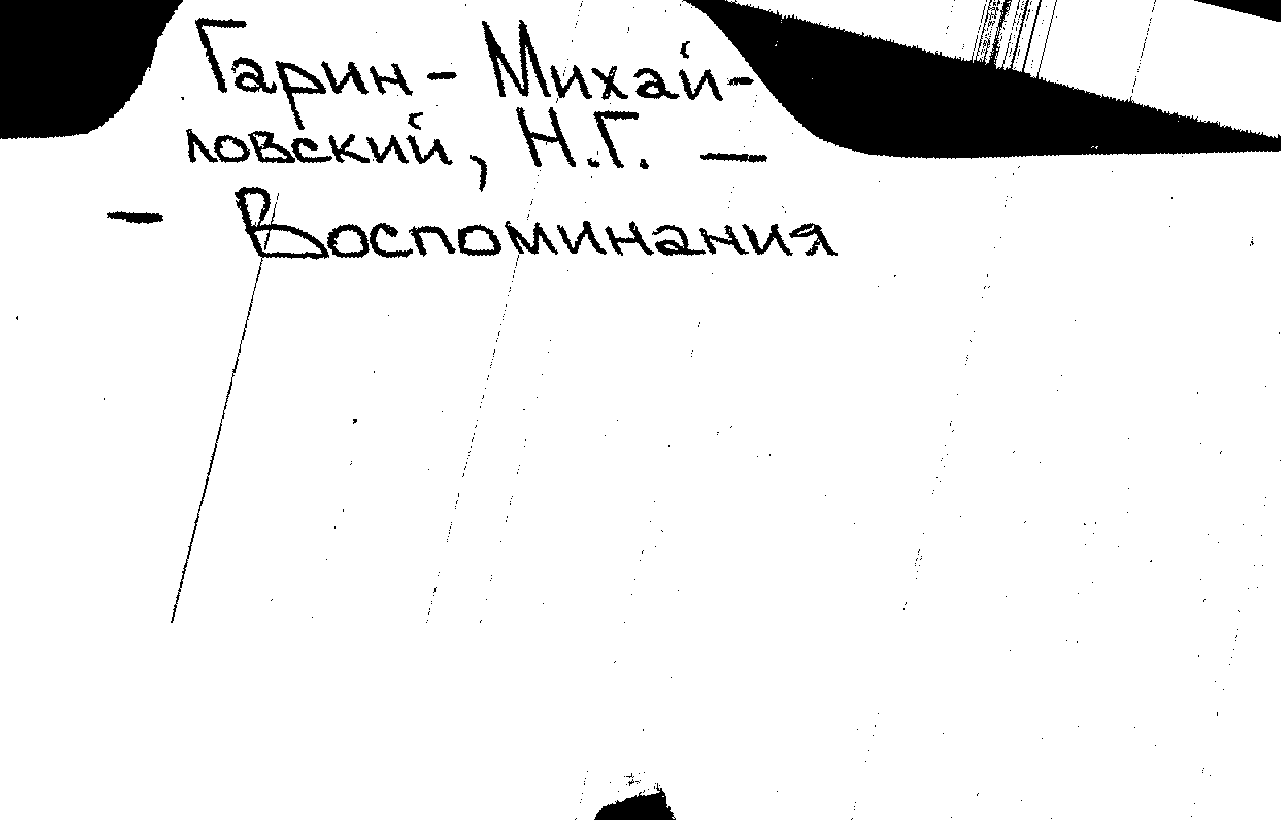 Гарин - Михай-
ловский, Н.Г. —
— Воспоминания